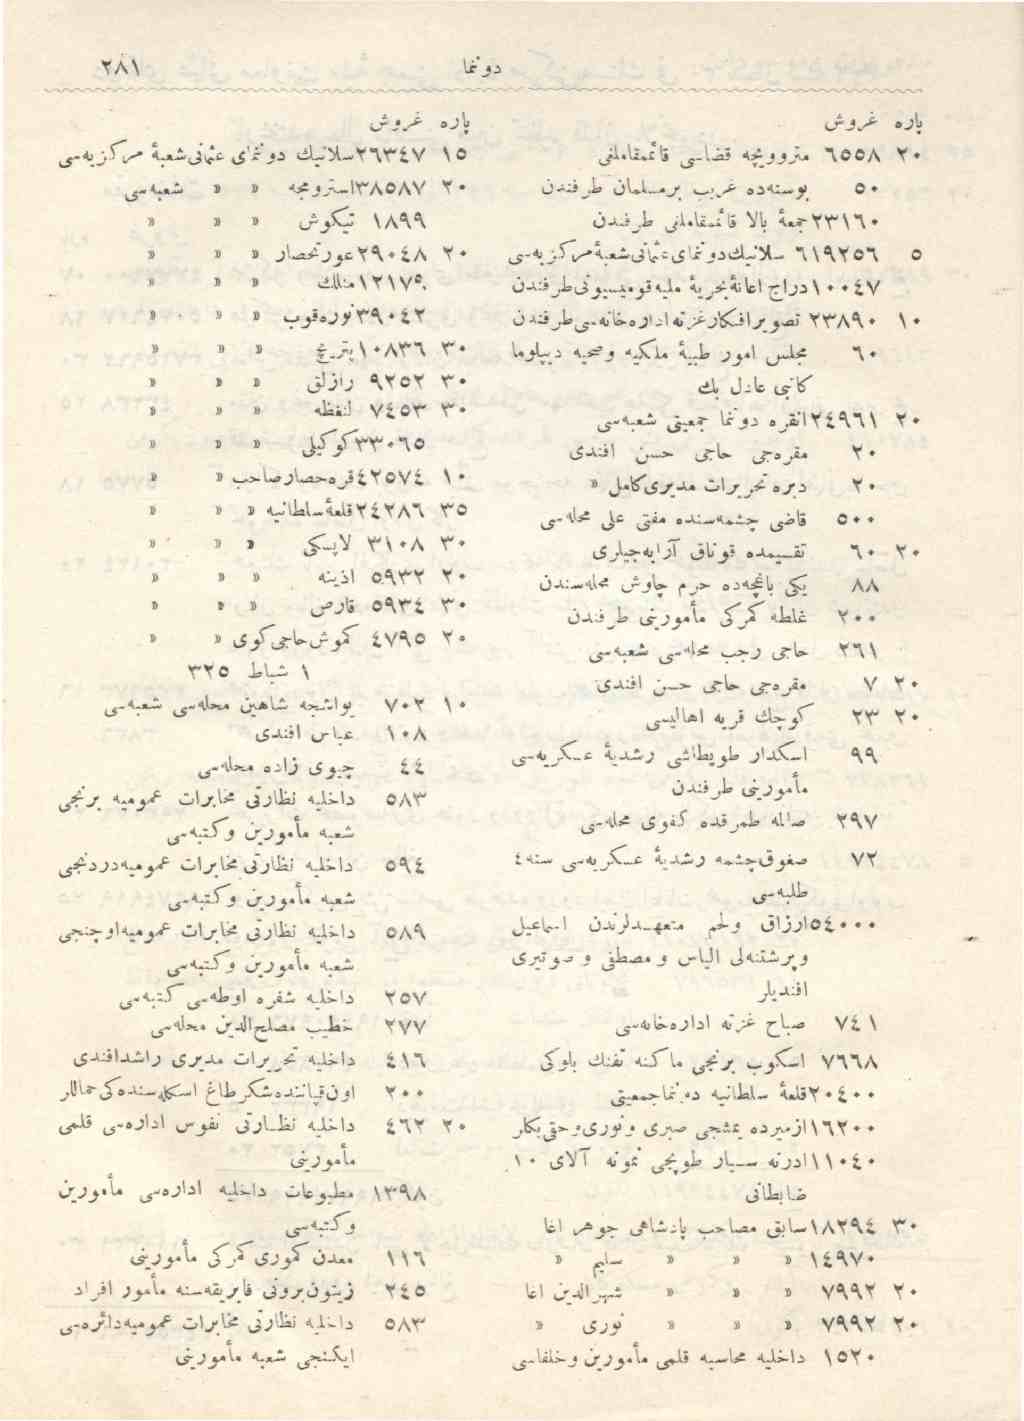 دونما
٢٨١
پاره غروش
٢٠ ٦٥٥٨ متروويچه قضاسى قائمقاملغى
٥٠ بوسنه‌ده غريب برمسلمان طرفندن
٢٣١٦٠ جمعهٔ بالا قائمقاملغى طرفندن
٥ ٦١٩٢٥٦ سلانيك دونماى عثمانى شعبهٔ مركزيه‌سى
١٠٠٤٧ دراج اعانهٔ بحريهٔ مليه قوميسيونى طرفندن
١٠ ٢٣٨٩٠ تصوير افكار غزته اداره‌خانه‌سى طرفندن
٦٠ مجلس امور طبيهٔ ملكيه وصحيه ديپلوما
كاتبى عادل بك
٢٠ ٢٤٩٦١ انقره دونما جمعيتى شعبه‌سى
٢٠ مقره‌جى حاجى حسن افندى
٢٠ دبره تحريرات مديرى كامل »
٥٠٠ قاضى چشمه‌سنده مفتى على محله‌سى
٢٠ ٦٠ تقسيمده قوناق آرابه‌جيلرى
٨٨ يكى باغچه‌ده خرم چاوش محله‌سندن
٢٠٠ غلطه كمركى مأمورينى طرفندن
٢٦١ حاجى رجب محله‌سى شعبه‌سى
٢٠ ٧ مقره‌جى حاجى حسن افندى
٢٠ ٢٣ كوچك قريه اهاليسى
٩٩ اسكدار طوپطاشى رشديهٔ عسكريه‌سى
مأمورينى طرفندن
٢٩٧ صالمه طمرقده كفوى محله‌سى
٧٢ صغوق‌چشمه رشديهٔ عسكريه‌سى سنه ٤
طلبه‌سى
٥٤٠٠٠ ارزاق ولحم متعهدلرندن اسماعيل
وپرشتنه‌لى الياس و مصطفى و صوتيرى
افنديلر
٧٤١ صباح غزته اداره‌خانه‌سى
٧٦٦٨ اسكوب برنجى ماكنه تفنك بلوكى
٢٠٤٠٠ قلعهٔ سلطانيه دونما جمعيتى
١٦٢٠٠ ازميرده يمشجى صبرى ونورى وحقى بكلر
١١٠٤٠ ادرنه سيار طوپجى نمونه آلاى ١٠
ضابطانى
٣٠ ١٨٢٩٤ سابق مصاحب پادشاهى جوهر اغا
١٤٩٧٠ » » » سليم »
٢٠ ٧٩٩٢ » » » شهرالدين اغا
٢٠ ٧٩٩٢ » » » نورى »
١٥٢٠ داخليه محاسبه قلمى مأمورين وخلفاسى
پاره غروش
١٥ ٢٦٣٤٧ سلانيك دونماى عثمانى شعبهٔ مركزيه‌سى
٢٠ ٣٨٥٨٧ استرومجه » » شعبه‌سى
١٨٩٩ تيكوش » » »
٢٠ ٢٩٠٤٨ عورتحصار » » »
١٢١٧٥ منلك » » »
٣٩٠٤٢ نوره‌قوپ » » »
٣٠ ١٠٨٣٦ پترىچ » » »
٣٠ ٩٢٥٢ رازلق » » »
٣٠ ٧٤٥٣ لنغظه » » »
٣٣٠٦٥ كوكيلى » » »
١٠ ٤٢٥٧٤ قره‌حصار صاحب » »
٣٥ ٢٤٢٨٦ قلعهٔ سلطانيه » » »
٣٠ ٣١٠٨ لاپسكى » » »
٢٠ ٥٩٣٢ اذينه » » »
٣٠ ٥٩٣٤ قارص » » »
٢٠ ٤٧٩٥ كموش‌حاجى‌كوى » »
١ شباط ٣٢٥
١٠ ٧٠٢ يواشجه شاهين محله‌سى شعبه‌سى
١٠٨ عباس افندى
٤٤ چيوى زاده محله‌سى
٥٨٣ داخليه نظارتى مخابرات عموميه برنجى
شعبه مأمورين وكتبه‌سى
٥٩٤ داخليه نظارتى مخابرات عموميه دردنجى
شعبه مأمورين وكتبه‌سى
٥٨٩ داخليه نظارتى مخابرات عموميه اوچنجى
شعبه مأمورين وكتبه‌سى
٢٥٧ داخليه شفره اوطه‌سى كتبه‌سى
٢٧٧ خطيب مصلح‌الدين محله‌سى
٤١٦ داخليه تحريرات مديرى راشدافندى
٢٠٠ اون‌قپاننده شكرطاغ اسكله‌سنده‌كى حماللر
٢٠ ٤٦٢ داخليه نظارتى نفوس اداره‌سى قلمى
مأمورينى
١٣٩٨ مطبوعات داخليه اداره‌سى مأمورين
وكتبه‌سى
١١٦ معدن كمورى كمركى مأمورينى
٢٤٥ زيتون‌برونى فابريقه‌سنه مأمور افراد
٥٨٣ داخليه نظارتى مخابرات عموميه دائره‌سى
ايكنجى شعبه مأمورينى